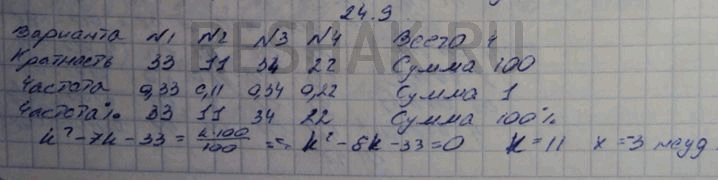 24.9
Варианта №1 №2 №3 №4 Всего 4
Кратность 33 11 34 22 Сумма 100
Частота 0,33 0,11 0,34 0,22 Сумма 1
Частота% 33 11 34 22 Сумма 100%
k²-7k-33 = k·100/100 == k²-8k-33=0 k=11 x=-3 неуд
RESHAK.RU